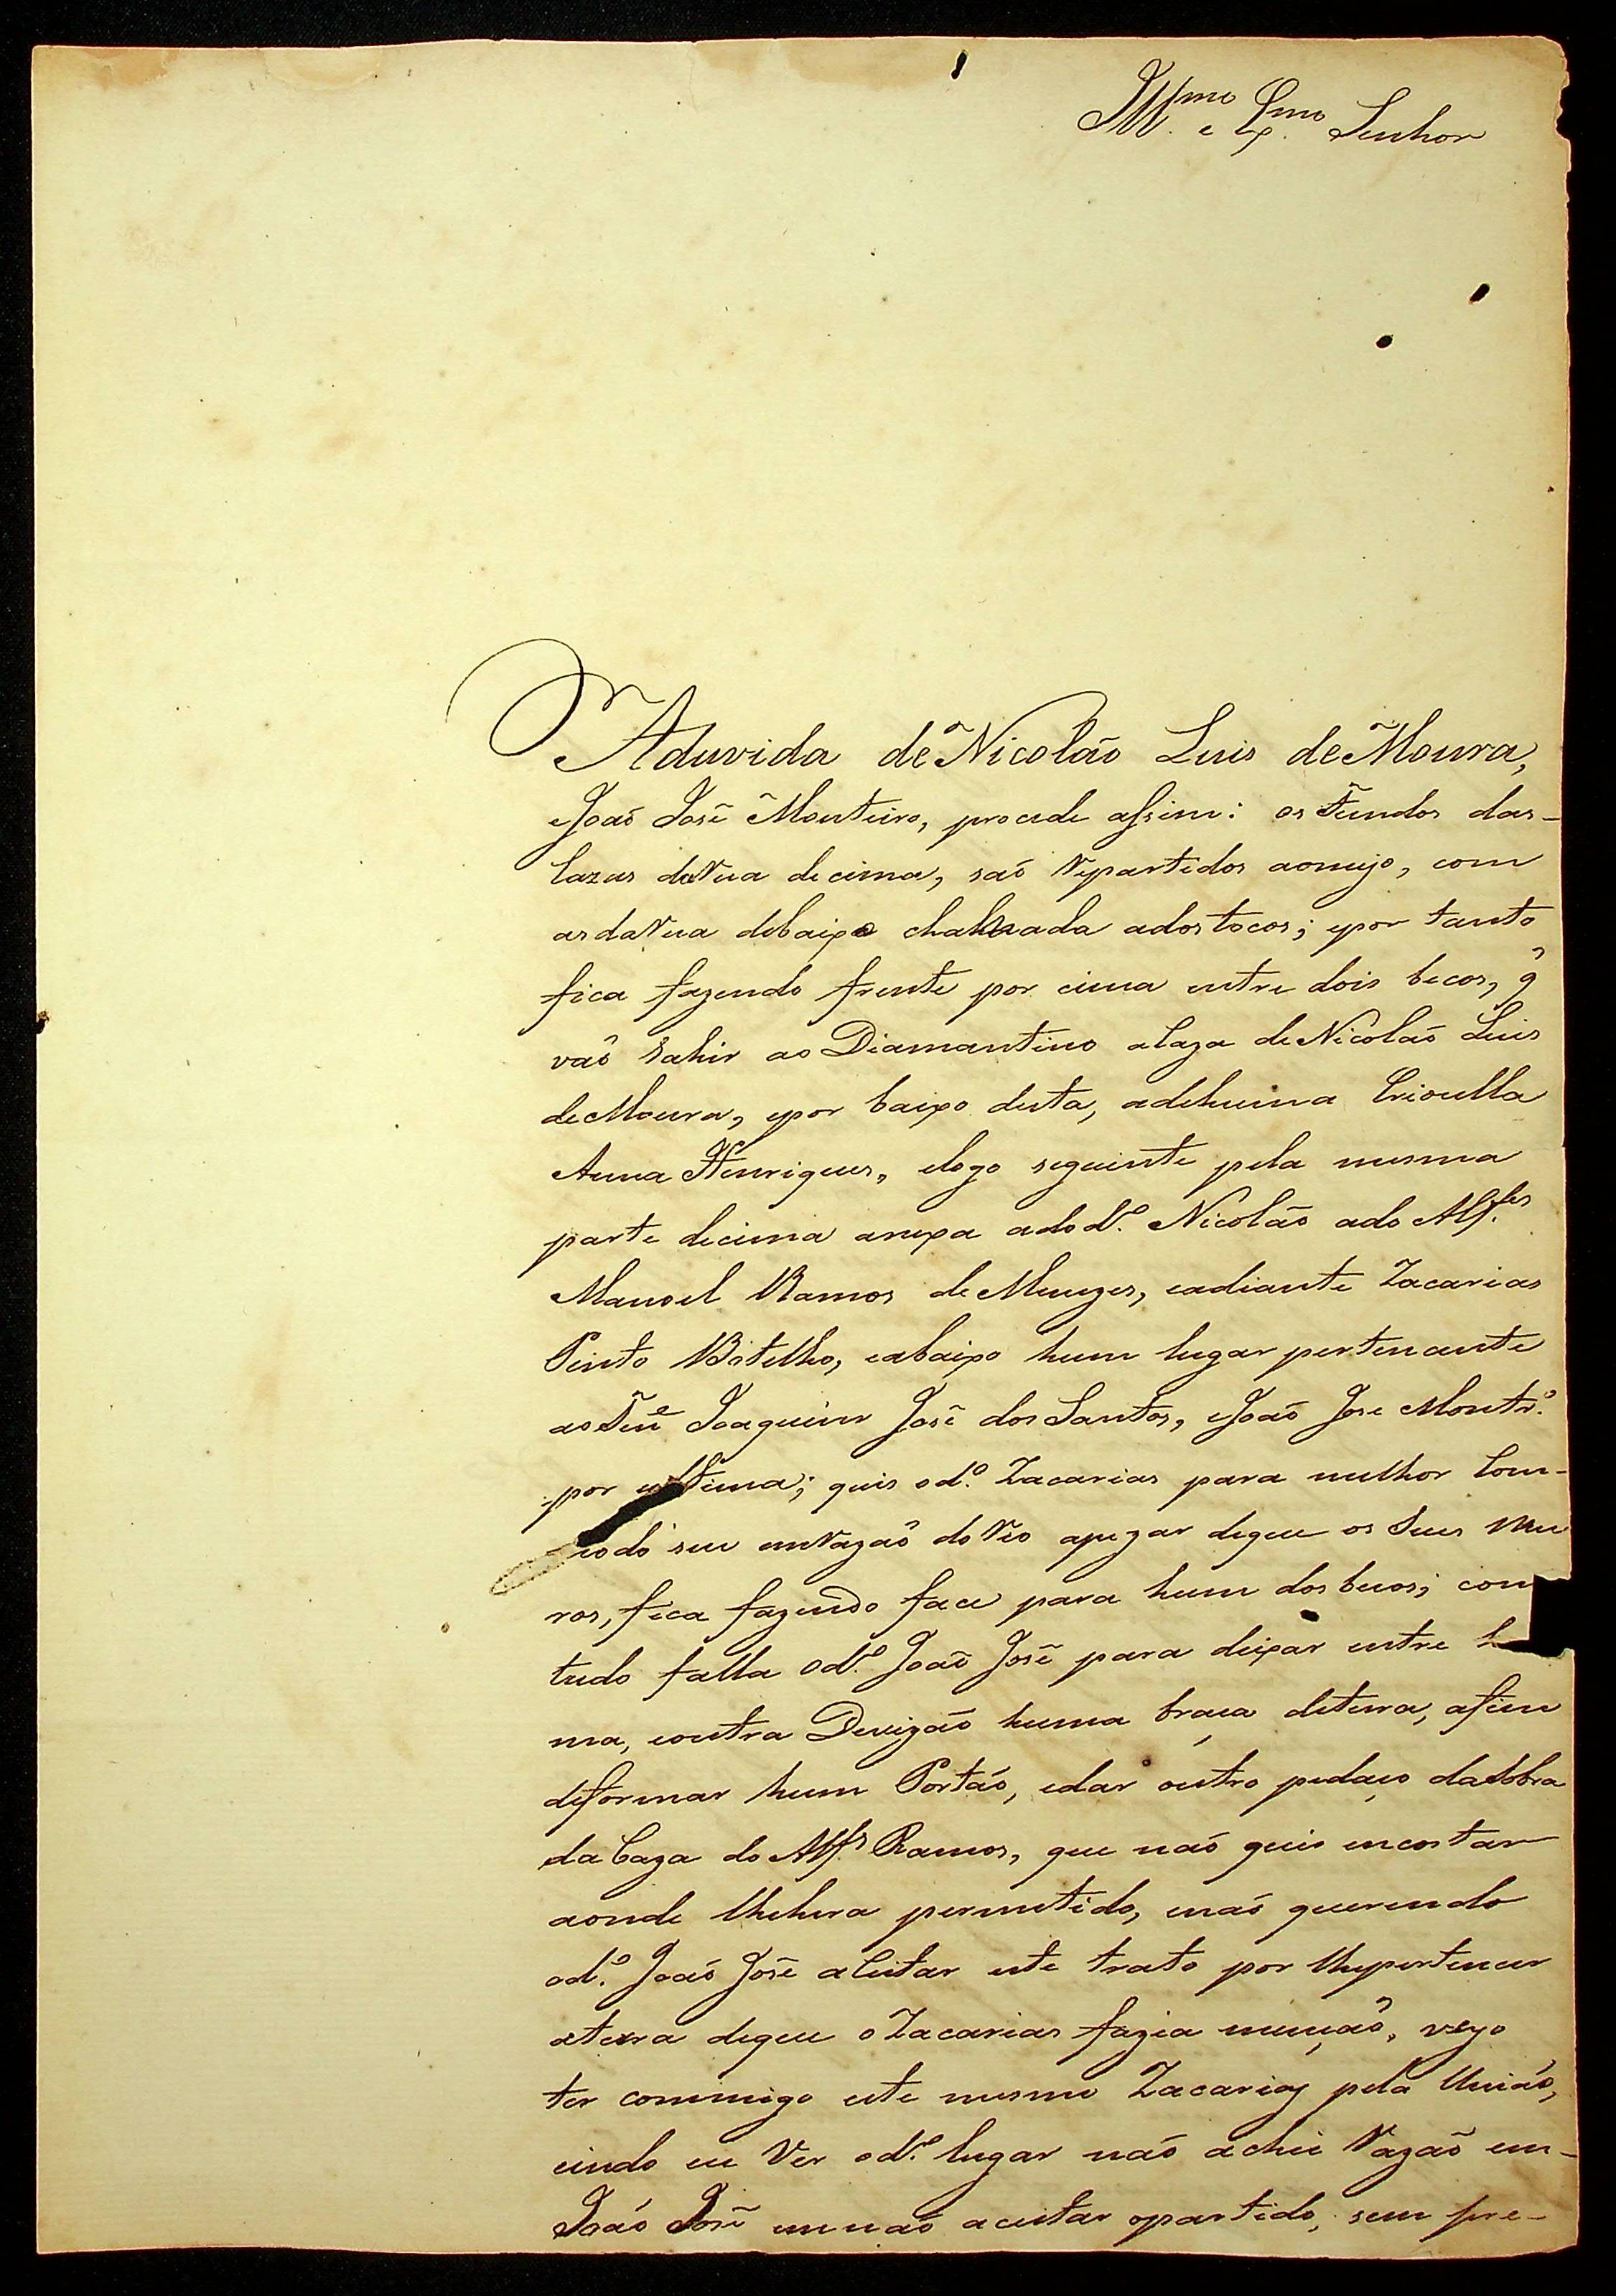 Ill.mo e Ex.mo Senhor
Aduvida de Nicoláo Luis de Moura,
eJoaõ José Monteiro, procede assim: os Fundos das-
Cazas daRua decima, saõ Repartidos aomejo, com
as daRua debaixo chamada ados tocos; epor tanto
fica fazendo frente por cima entre dois becos, q̃
vaõ Sahir ao Diamantino aCaza de Nicoláo Luis
de Moura, epor baixo desta, adehuma Crioulla
Anna Henriques, elogo seguinte pela mesma
parte decima anexa ado d.º Nicoláo ado Alf.es
Manoel Ramos de Menezes, eadiante Zacarias
Pinto Botelho, eabaixo hum lugar pertencente
ao Ten.e Joaquim José dos Santos, eJoaõ Jose Montr.º
por ultima; quis od.º Zacarias para milhor Com-
modo seu emRazaõ doReo apezar deque os Seus Mu
ros, fica fazendo face para hum dos becos; com
tudo falla od.º Joaõ José para deixar entre
ma, eoutra Devizaõ huma braça deterra, afim
deformar hum Portaõ, edar outro pedaço daSobra
daCaza do Alf.s Ramos, que naõ quis encostar
aonde lhehera permetido, enaõ querendo
od.º Joaõ José aCeitar este trato por lhepertencer
aterra deque oZacarias fazia mençaõ, veyo
ter commigo este mesmo Zacarias pela Uniaõ,
eindo eu Ver od.º lugar naõ achei Razaõ em-
Joaõ José em naõ aceitar opartido, sem pre-